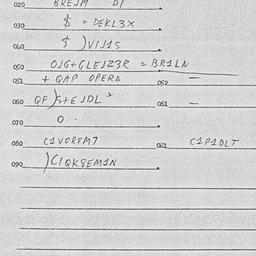 020 BREJM D1
030 $ = DEKL3X
040 $ )VIJ1S
050 OJG+GLEJZ3R = BR1LN
051 + QAP OPERA 052 —
060 QF)S+EJDL² 061 —
070 O .
080 C1VORFM7 081 C1P1DLT
090 )CIQK8EM1N